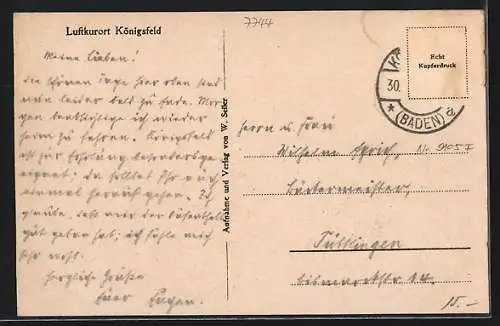 7744
Luftkurort Königsfeld
Meine Lieben!
Die schönen Tage hier oben sind
nun leider bald zu Ende. Mor-
gen beabsichtige ich wieder
heim zu fahren. Königsfeld
ist zur Erholung besonders ge-
eignet; da solltet Ihr auch
einmal herauf gehen. Ich
glaube, daß mir der Aufenthalt
gut getan hat; ich fühle mich
sehr wohl.
Herzliche Grüße
Euer Eugen.
Aufnahme und Verlag von W. Seifer
Echt
Kupferdruck
30.
(BADEN) a
Herrn u. Frau
Wilhelm
Nr.
Bäckermeister,
Tuttlingen
Bismarckstr.
15.-